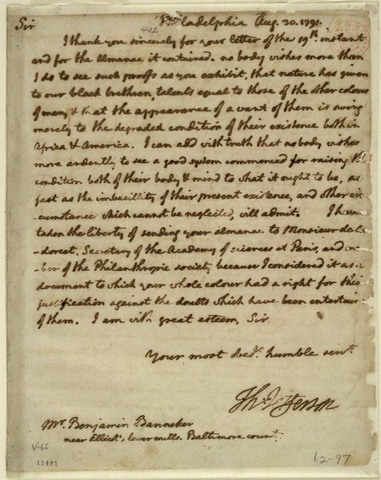 Sir
402
Philadelphia Aug. 30. 1791.
I thank you sincerely for your letter of the 19th. instant
and for the Almanac it contained. no body wishes more than
I do to see such proofs as you exhibit, that nature has given
to our black brethren, talents equal to those of the other colours
of men, & that the appearance of a want of them is owing
merely to the degraded condition of their existence both in
Africa & America. I can add with truth that no body wishes
more ardently to see a good system commenced for raising the
condition both of their body & mind to what it ought to be, as
fast as the imbecillity of their present existence, and other cir-
cumstance which cannot be neglected, will admit. I have
taken the liberty of sending your almanac to Monsieur de
dorcet, Secretary of the Academy of sciences at Paris, and
ber of the Philanthropic society, because I considered it as a
document to which your whole colour had a right for their
justification against the doubts which have been entertain
of them. I am with great esteem, Sir,
Your most obedt. humble servt.
Th Jefferson
Mr. Benjamin Banneker
near Ellicot's, lower mills. Baltimore count.
V-66
11481
62-97